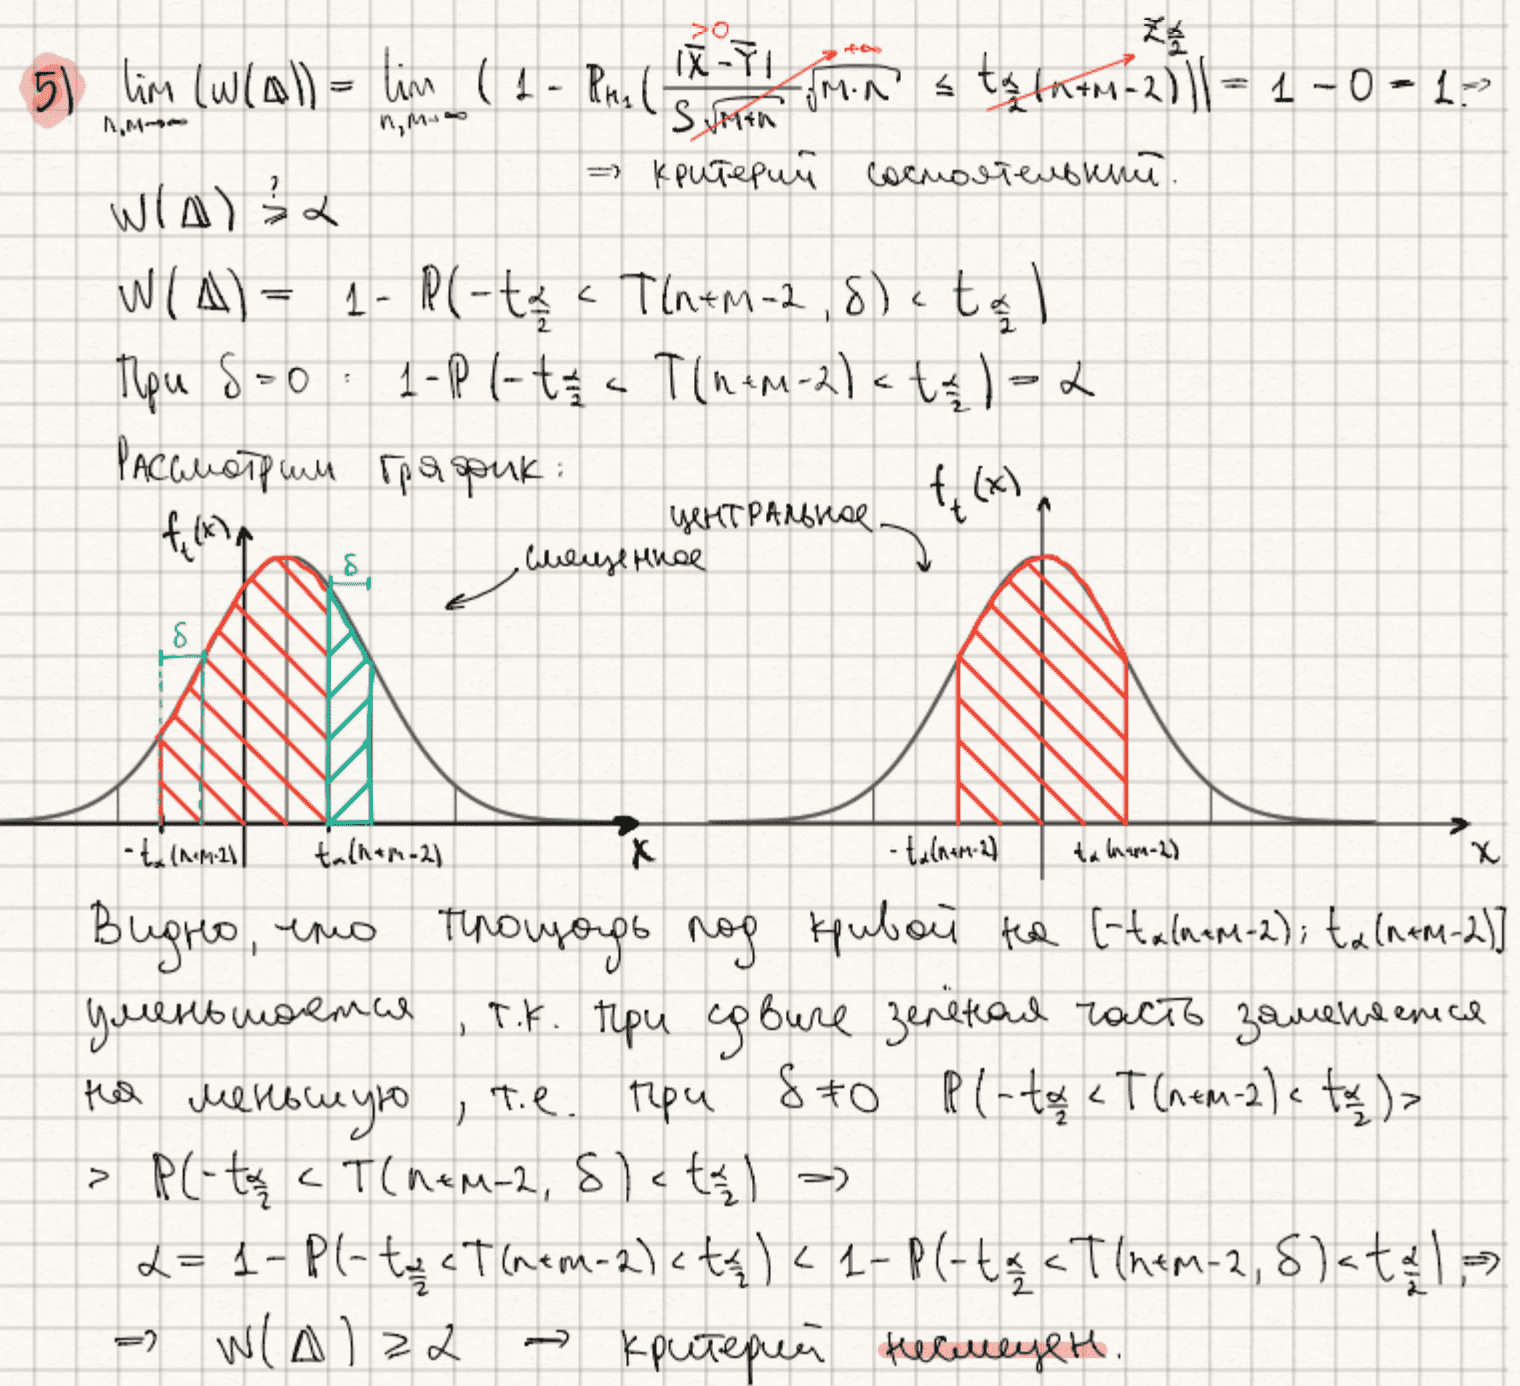 5) lim (W(Δ)) = lim ( 1 - ℙ_H₁ ( |X̄ - Ȳ| / S√(m+n) · √(m·n) ≤ t_{α/2} (n+m-2))) = 1 - 0 = 1 ⇒
n,m→∞ n,m→∞ >0 +∞ z_{α/2}
⇒ критерий состоятельный.
W(Δ) ≥? α
W(Δ) = 1 - ℙ(-t_{α/2} < T(n+m-2, δ) < t_{α/2})
При δ=0 : 1-ℙ (-t_{α/2} < T(n+m-2) < t_{α/2}) = α
Рассмотрим график:
f_t(x) δ δ смещенное
центральное f_t(x)
-t_α(n+m-2) t_α(n+m-2) x
-t_α(n+m-2) t_α(n+m-2) x
Видно, что площадь под кривой на [-t_α(n+m-2); t_α(n+m-2)]
уменьшается, т.к. при сдвиге зелёная часть заменяется
на меньшую, т.е. при δ≠0 ℙ(-t_{α/2} < T(n+m-2) < t_{α/2}) >
> ℙ(-t_{α/2} < T(n+m-2, δ) < t_{α/2}) ⇒
α = 1 - ℙ(-t_{α/2} < T(n+m-2) < t_{α/2}) < 1 - ℙ(-t_{α/2} < T(n+m-2, δ) < t_{α/2}), ⇒
⇒ W(Δ) ≥ α → критерий несмещен.